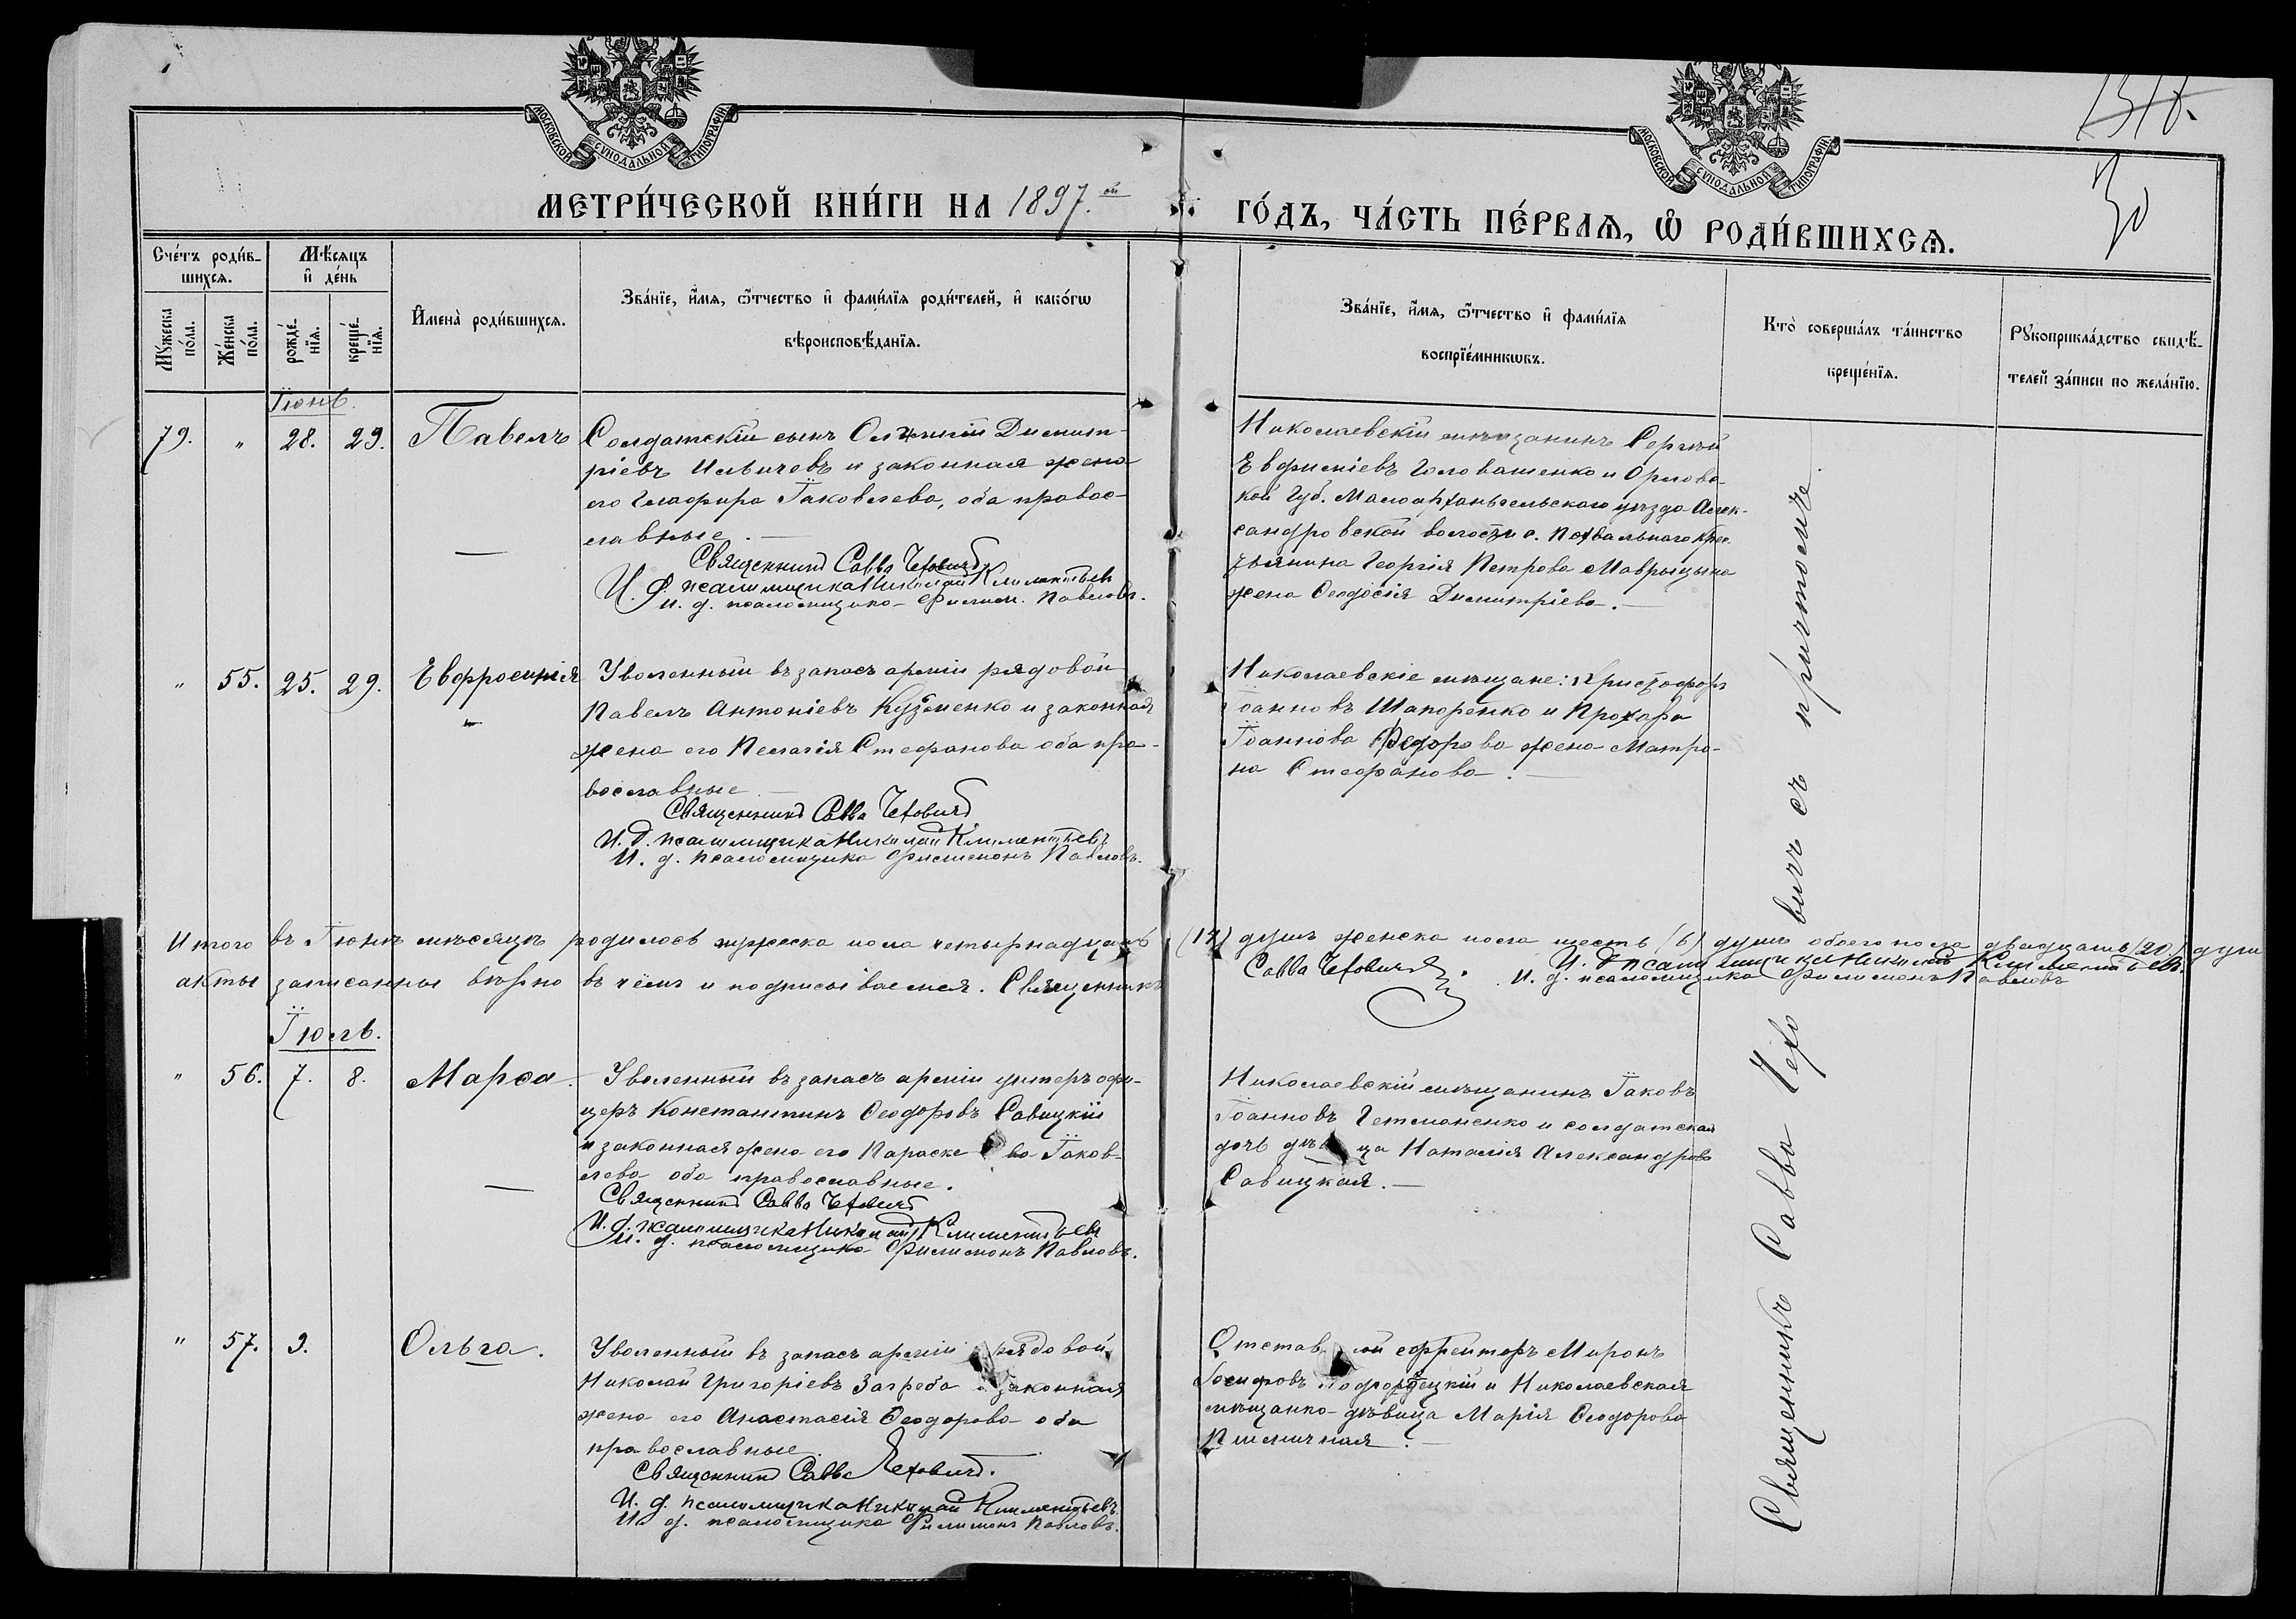 МОСКОВСКОЙ СѴНОДАЛЬНОЙ ТИПОГРАФІИ
МОСКОВСКОЙ СѴНОДАЛЬНОЙ ТИПОГРАФІИ
30
МЕТРИ́ЧЕСКОЙ КНИ́ГИ НА 1897.ой ГО́ДЪ, ЧА́СТЬ ПЕ́РВАѦ, Ѡ҆ РОДИ́ВШИХСѦ.
Сче́тъ роди́в-
шихсѧ.
Мꙋ́жеска по́ла.
Же́нска по́ла.
Мѣ́сѧцъ
и҆ де́нь
рожде́-нїѧ.
креще́-нїѧ.
И҆мена̀ роди́вшихсѧ.
Зва́нїе, и҆́мѧ, ѻ҆́тчество и҆ фами́лїѧ роди́телей, и҆ како́гѡ
вѣроисповѣ́данїѧ.
Зва́нїе, и҆́мѧ, ѻ҆́тчество и҆ фами́лїѧ
воспрїе́мникѡвъ.
Кто̀ соверша́лъ та́инство
креще́нїѧ.
Рꙋкоприкла́дство свидѣ́-
телей за́писи по жела́нїю.
Іюнь.
79. " 28. 29. Павелъ
Солдатскій сынъ Димит-
ріевъ Ильичевъ и законная жена
его Глафира Іаковлева, оба правос-
лавные. —
Священникъ Савва Чехович
И. д. псаломщика Николай Климентьев
и. д. псаломщика Филим. Павловъ.
Николаевскій мѣщанинъ Сергѣй
Евфиміевъ Головатенко и Орловс-
кой Губ. Малоархангельскаго уѣзда Алек-
сандровской волости с. Похвальнаго крес-
тьянина Георгія Петрова Маврыцына
жена Ѳеодосія Димитріева. —
" 55. 25. 29. Евфросинія
Уволенный въ запасъ арміи рядовой
Павелъ Антоніевъ Кузьменко и законная
жена его Пелагія Стефанова оба пра-
вославные. —
Священникъ Савва Чехович
И. д. псаломщика Николай Климентьевъ
И. д. псаломщика Филимонъ Павловъ.
Николаевскіе мѣщане: Христофоръ
Іоанновъ Шапоренко и Прохора
Іоаннова Федорова жена Матро-
на Стефанова. —
Итого въ Іюнѣ мѣсяцѣ родилось мужеска пола четырнадцать (14) душъ женска пола шесть (6) душъ обоего пола двадцать (20) душ
акты записанны вѣрно въ чёмъ и подписываемся. Священникъ Савва Чехович. И. д. псаломщика Николай Климентьев.
и. д. псаломщика Филимонъ Павловъ
Іюль.
" 56. 7. 8. Марѳа.
Уволенный въ запасъ арміи унтеръ офи-
церъ Константинъ Ѳеодоровъ Савицкій
и законная жена его Параскева Іаков-
лева оба православные.
Священникъ Савва Чехович
И. д. псаломщика Николай Климентьев
И. д. псаломщика Филимонъ Павловъ.
Николаевскій мѣщанинъ Іаковъ
Іоанновъ Гетманенко и солдатская
дочь дѣвица Наталія Александрова
Савицкая. —
" 57. 9. Ольга.
Уволенный въ запасъ арміи рядовой
Николай Григоріевъ Загреба и законная
жена его Анастасія Ѳеодорова оба
православные.
Священникъ Савва Чехович.
И. д. псаломщика Николай Климентьевъ.
И. д. псаломщика Филимонъ Павловъ.
Отставной ефрейторъ Миронъ
Іосифовъ и Николаевская
мѣщанка дѣвица Марія Ѳеодорова
Пшеничная. —
Священникъ Савва Чехович съ причтомъ.